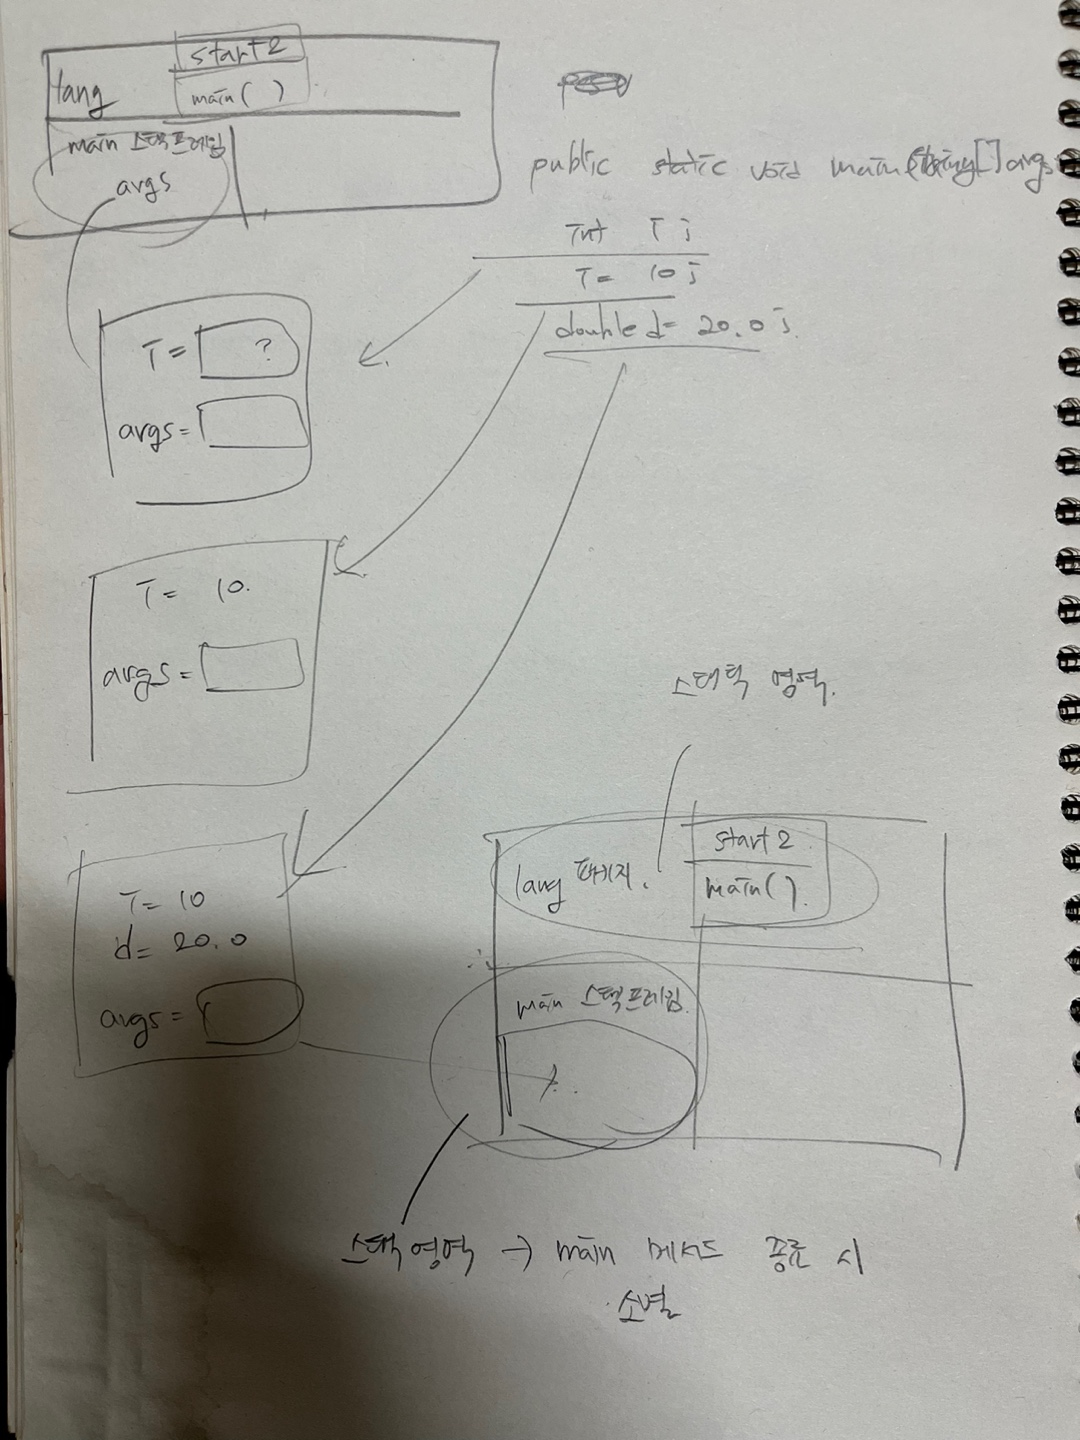 start2
lang
main( )
main 스택프레임
args
public static void main(String[] args
int i;
i = 10;
double d = 20.0;
i = ?
args =
i = 10.
args =
스태틱 영역.
i = 10
d = 20.0
args =
start2
lang 패키지.
main().
main 스택프레임.
스택영역 → main 메서드 종료 시
소멸